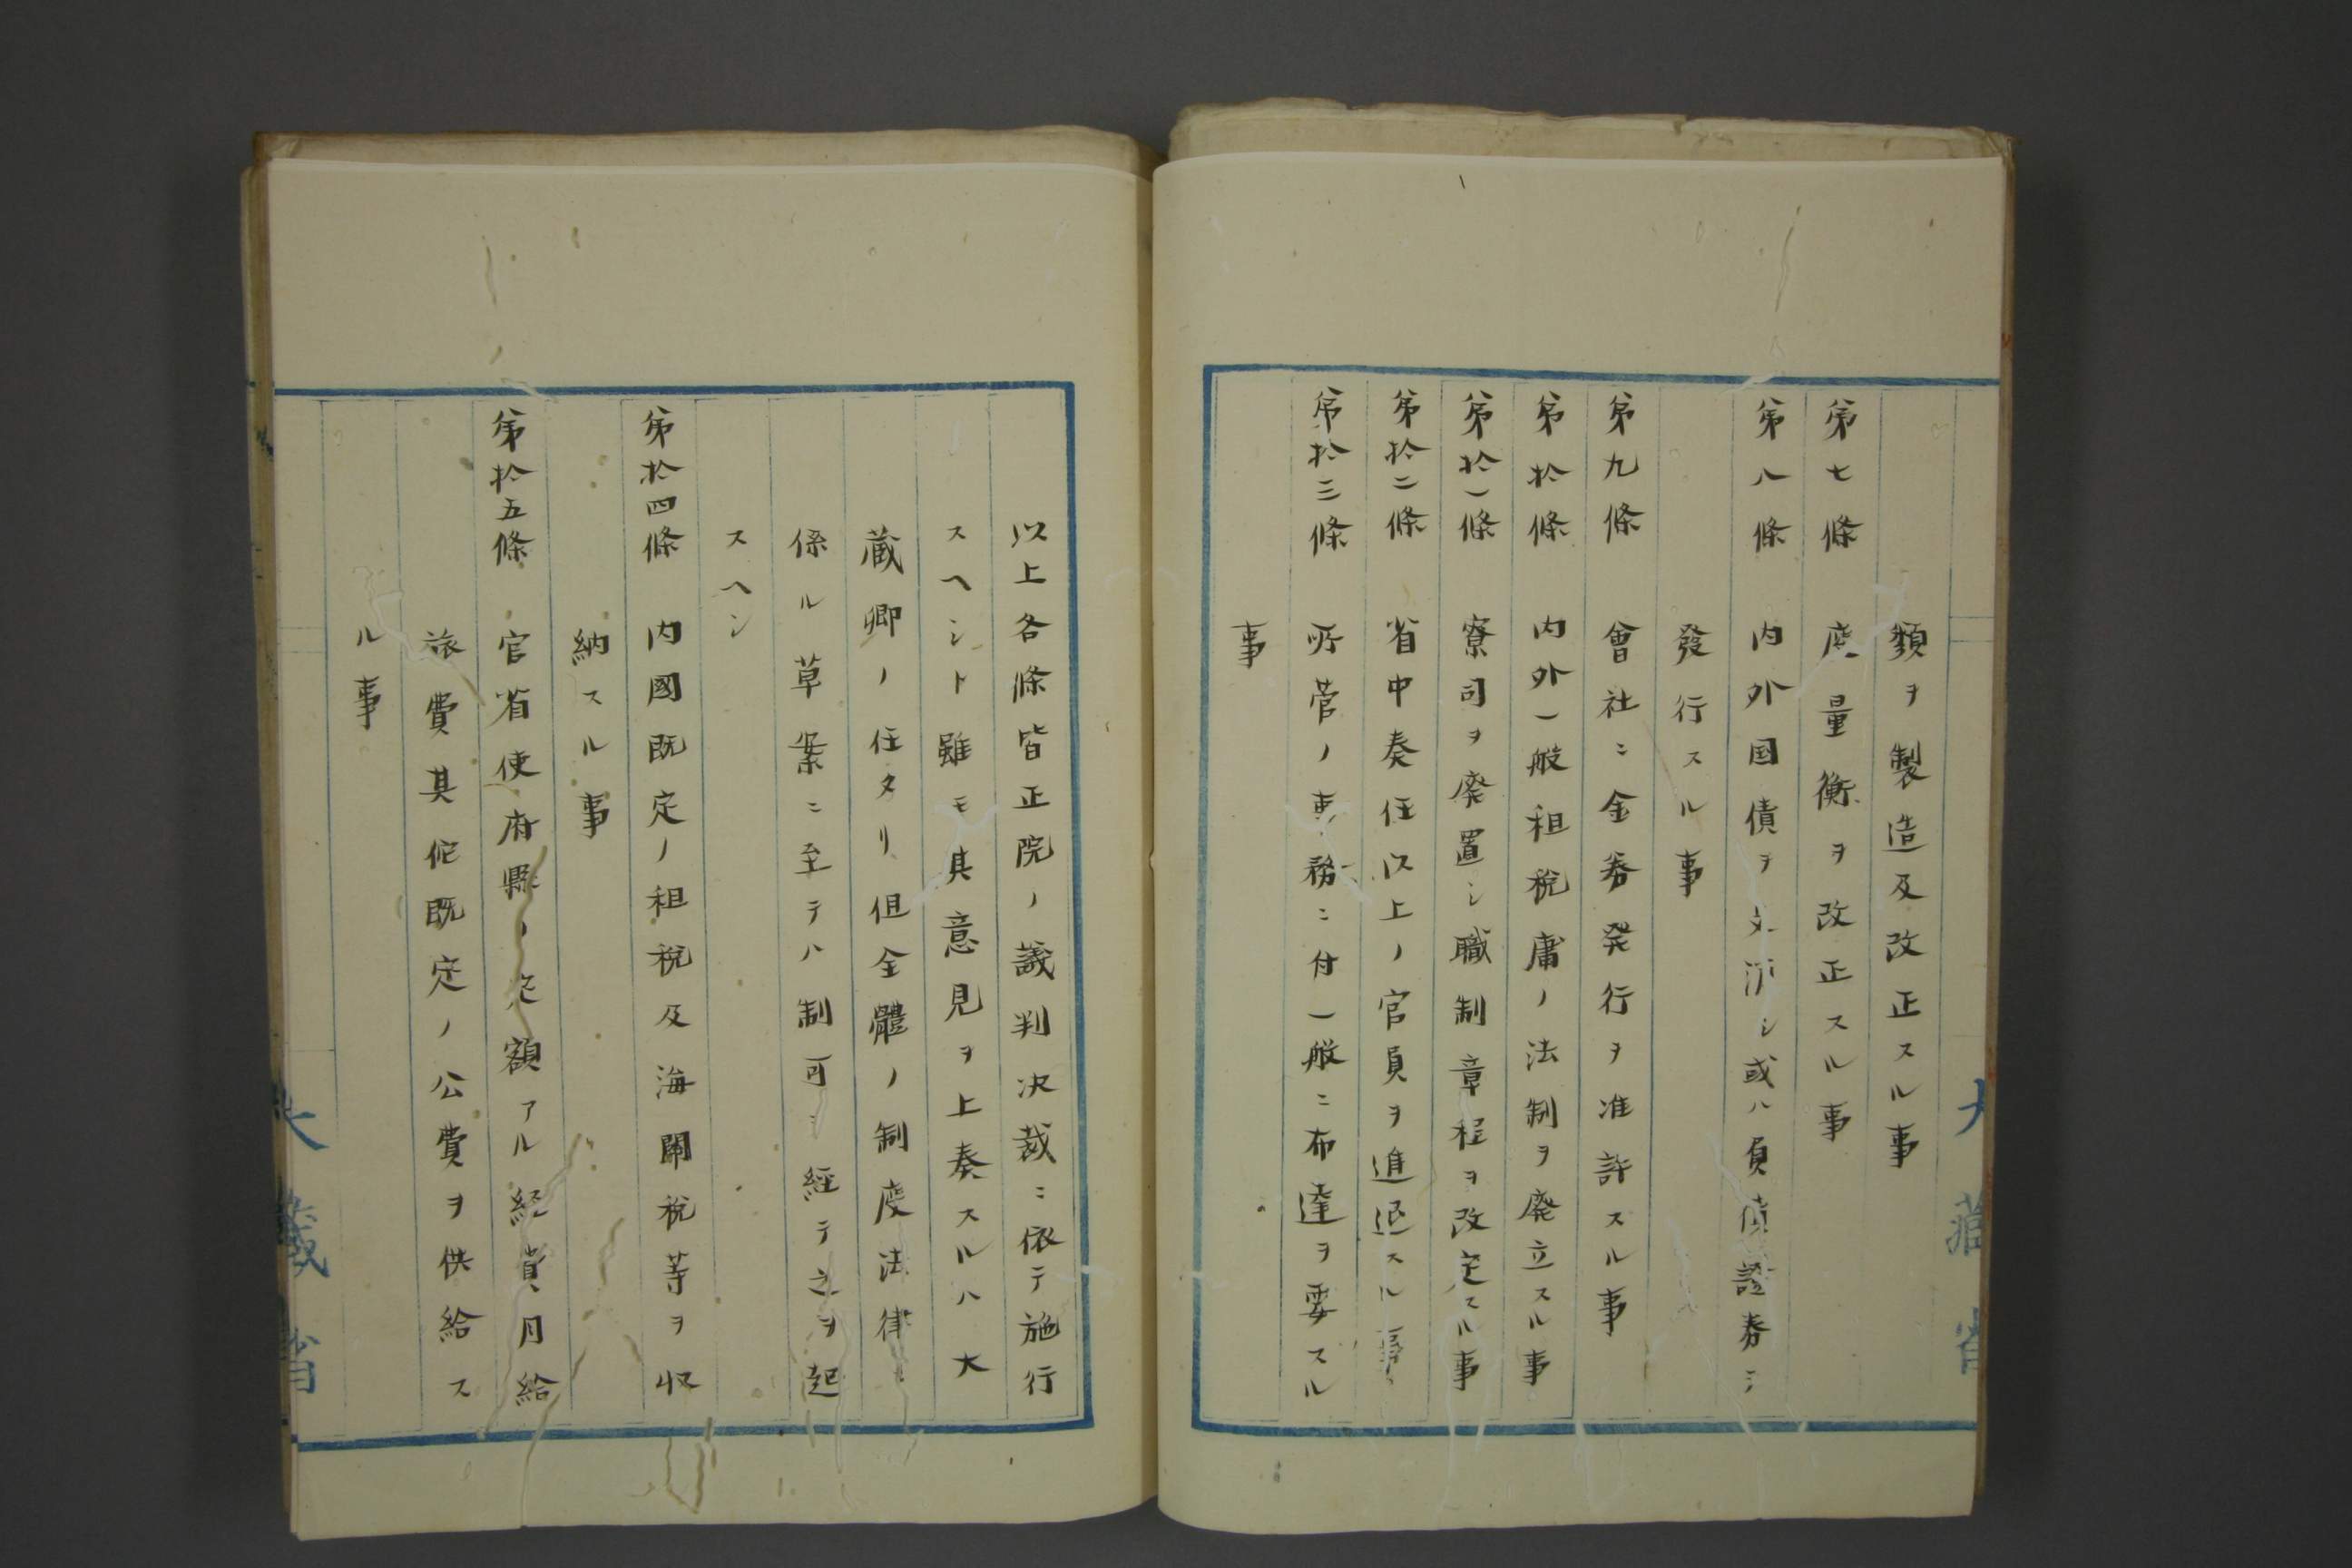 類ヲ製造及改正スル事
第七條 度量衡ヲ改正スル事
第八條 内外国債ヲ支消シ或ハ負債證券ヲ
發行スル事
第九條 會社ニ金券発行ヲ准許スル事
第拾條 内外一般租税庸ノ法制ヲ廃立スル事
第拾一條 寮司ヲ廃置シ職制章程ヲ改定スル事
第拾二條 省中奏任以上ノ官員ヲ進退スル事
第拾三條 所管ノ事務ニ付一般ニ布達ヲ要スル
事
以上各條皆正院ノ議判决裁ニ依テ施行
スヘシト雖モ其意見ヲ上奏スルハ大
蔵卿ノ任タリ但全體ノ制度法律ニ
係ル草案ニ至テハ制可ヲ經テ之ヲ起
スヘシ
第拾四條 内國既定ノ租税及海關税等ヲ収
納スル事
第拾五條 官省使府縣ノ定額アル経費月給
旅費其佗既定ノ公費ヲ供給ス
ル事
大藏省
大藏省